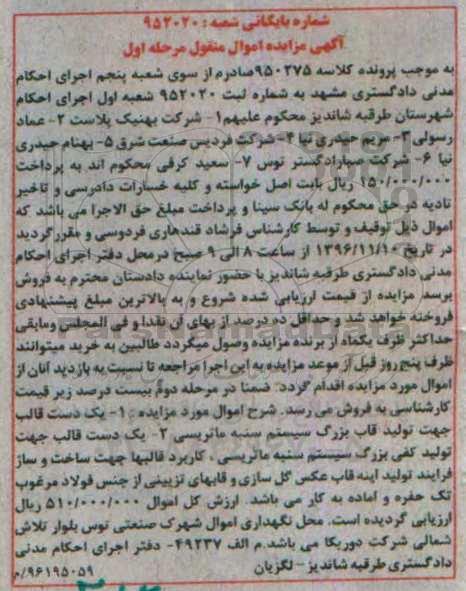 شماره بایگانی شعبه: ۹۵۲۰۲۰
آگهی مزایده اموال منقول مرحله اول
به موجب پرونده کلاسه ۹۵۰۲۷۵صادرم از سوی شعبه پنجم اجرای احکام
مدنی دادگستری مشهد به شماره ثبت ۹۵۲۰۲۰ شعبه اول اجرای احکام
شهرستان طرقبه شاندیز محکوم علیهم۱- شرکت بهنیک پلاست ۲- عماد
رسولی۳- مریم حیدری نیا ۴- شرکت فردیس صنعت شرق ۵- بهنام حیدری
نیا ۶- شرکت صبارادگستر توس ۷- سعید کرفی محکوم اند به پرداخت
۱۵۰/۰۰۰/۰۰۰ ریال بابت اصل خواسته و کلیه خسارات دادرسی و تاخیر
تادیه در حق محکوم له بانک سینا و پرداخت مبلغ حق الاجرا می باشد که
اموال ذیل توقیف و توسط کارشناس فرشاد قندهاری فردوسی و مقرر گردید
در تاریخ ۱۳۹۶/۱۱/۱۰ از ساعت ۸ الی ۹ صبح درمحل دفتر اجرای احکام
مدنی دادگستری طرقبه شاندیز با حضور نماینده دادستان محترم به فروش
برسد مزایده از قیمت ارزیابی شده شروع و به بالاترین مبلغ پیشنهادی
فروخته خواهد شد و حداقل ده درصد از بهای آن نقدا و فی المجلس ومابقی
حداکثر ظرف یکماه از برنده مزایده وصول میگردد طالبین به خرید میتوانند
ظرف پنج روز قبل از موعد مزایده به این اجرا مراجعه تا نسبت به بازدید آنان از
اموال مورد مزایده اقدام گردد. ضمنا در مرحله دوم بیست درصد زیر قیمت
کارشناسی به فروش می رسد. شرح اموال مورد مزایده : ۱- یک دست قالب
جهت تولید قاب بزرگ سیستم سنبه ماتریسی ۲- یک دست قالب جهت
تولید کفی بزرگ سیستم سنبه ماتریسی . کاربرد قالبها جهت ساخت و ساز
فرایند تولید اینه قاب عکس گل سازی و قابهای تزیینی از جنس فولاد مرغوب
تک حفره و اماده به کار می باشد. ارزش کل اموال ۵۱۰/۰۰۰/۰۰۰ ریال
ارزیابی گردیده است. محل نگهداری اموال شهرک صنعتی توس بلوار تلاش
شمالی شرکت دوریکا می باشد.م الف ۴۹۲۳۷- دفتر اجرای احکام مدنی
دادگستری طرقبه شاندیز - لگزیان
۹۶۱۹۵۰۵۹/م
ParsNamadData